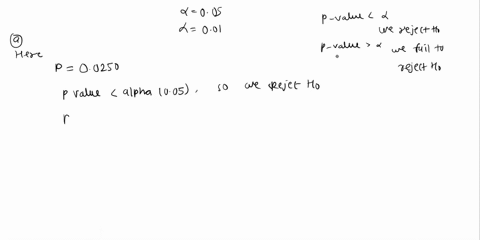 α = 0.05
α = 0.01
p-value < α
we reject H0
p-value > α we fail to
reject H0
(a)
Here
P = 0.0250
p value < alpha (0.05), so we reject H0
p